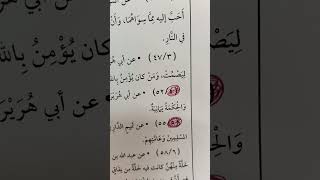 أَحَبَّ إليه مِمَّا سِوَاهُمَا، وَأَنْ
في النَّارِ.
(٤٧/٣) • عن أبي هُرَ
لِيَصْمُتْ، وَمَنْ كان يُؤْمِنُ بِاللهِ
(٥٢/ • عن أبي هُرَيْرَ
وَالْحِكْمَةُ يَمَانِيَةٌ.
(٥٥/ • عن تَمِيمٍ الدَّارِ
الْمُسْلِمِينَ وَعَامَّتِهِمْ.
(٥٨/٦) • عن عبد الله بن
خَلَّةٌ مِنْهُنَّ كانت فيه خَلَّةٌ من نِفَاقٍ